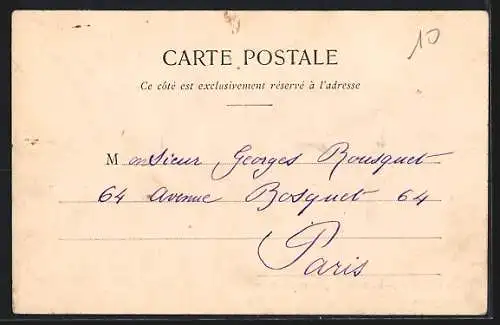 10
CARTE POSTALE
Ce côté est exclusivement réservé à l'adresse
Monsieur Georges Rousquet
64 avenue Bosquet 64
Paris